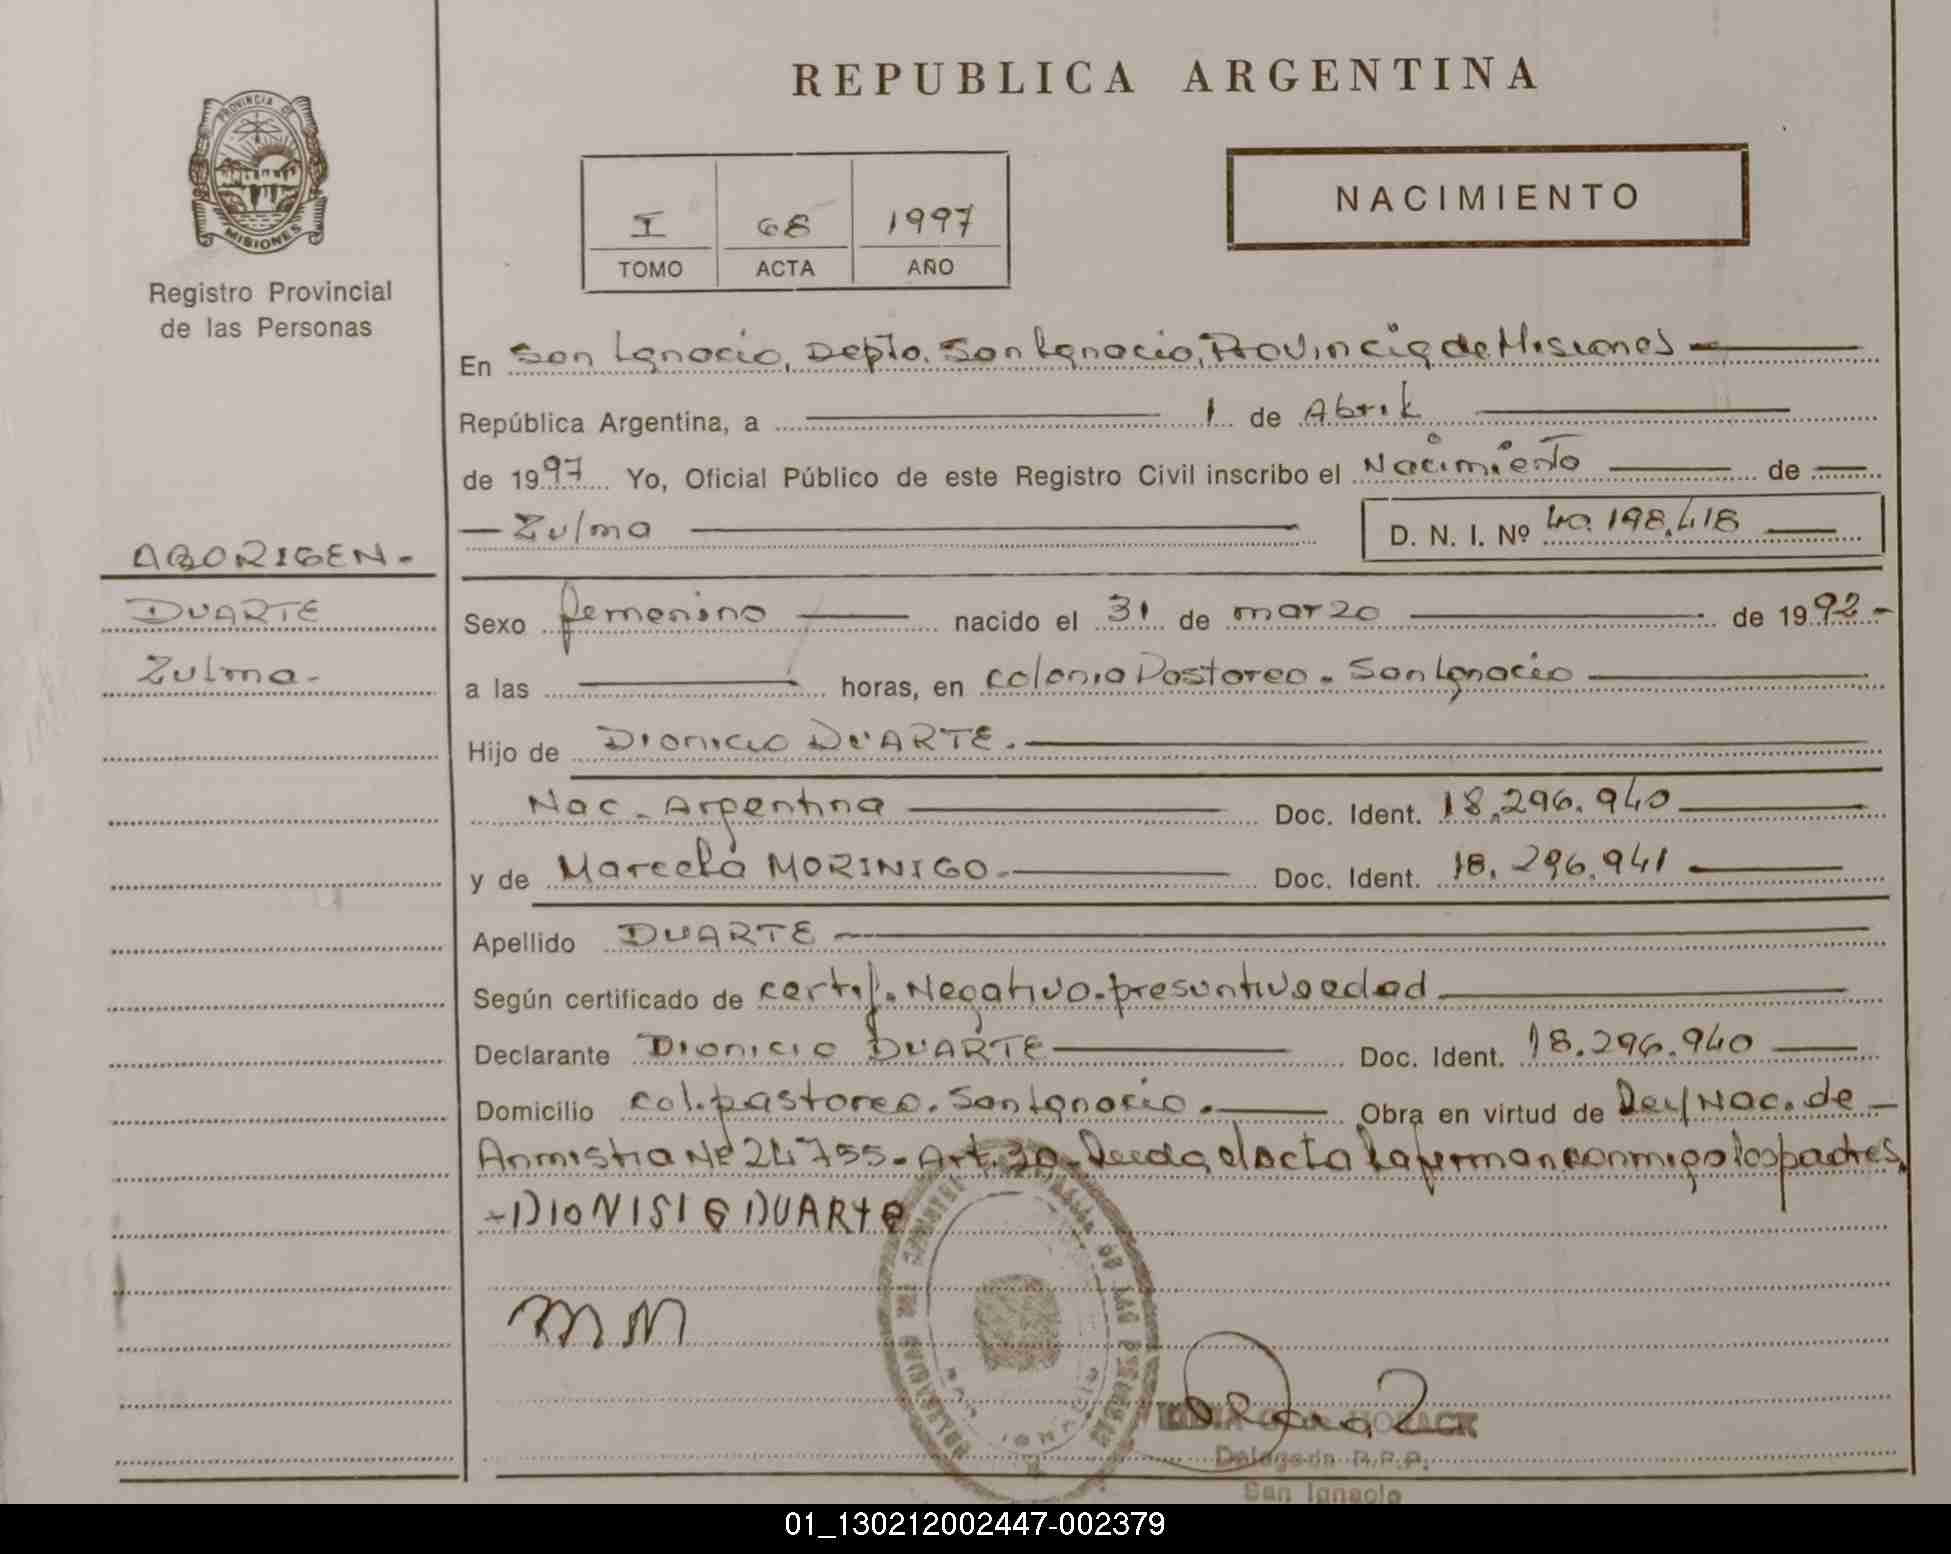 REPUBLICA ARGENTINA
PROVINCIA DE
MISIONES
Registro Provincial
de las Personas
NACIMIENTO
I 68 1997
TOMO ACTA AÑO
En San Ignacio, Depto. San Ignacio, Provincia de Misiones
República Argentina, a 1 de Abril
de 1997 Yo, Oficial Público de este Registro Civil inscribo el Nacimiento de
Zulma D. N. I. Nº 40.198.418
ABORIGEN.-
DUARTE
Zulma.-
Sexo femenino nacido el 31 de marzo de 1992.-
a las horas, en colonia Pastoreo. San Ignacio
Hijo de Dionicio DUARTE.
Nac. Argentina Doc. Ident. 18.296.940
y de Marcela MORINIGO. Doc. Ident. 18.296.941
Apellido DUARTE
Según certificado de certif. Negativo. presuntiva edad
Declarante Dionicio DUARTE Doc. Ident. 18.296.940
Domicilio col. pastoreo. San Ignacio. Obra en virtud de Ley Nac. de
Anmistia Nº 24755. Art. 30. Leida el acta la firman conmigo los padres.
DIONISIO DUARTE
MM
SAN IGNACIO
Delegada R.P.P.
San Ignacio
01_130212002447-002379